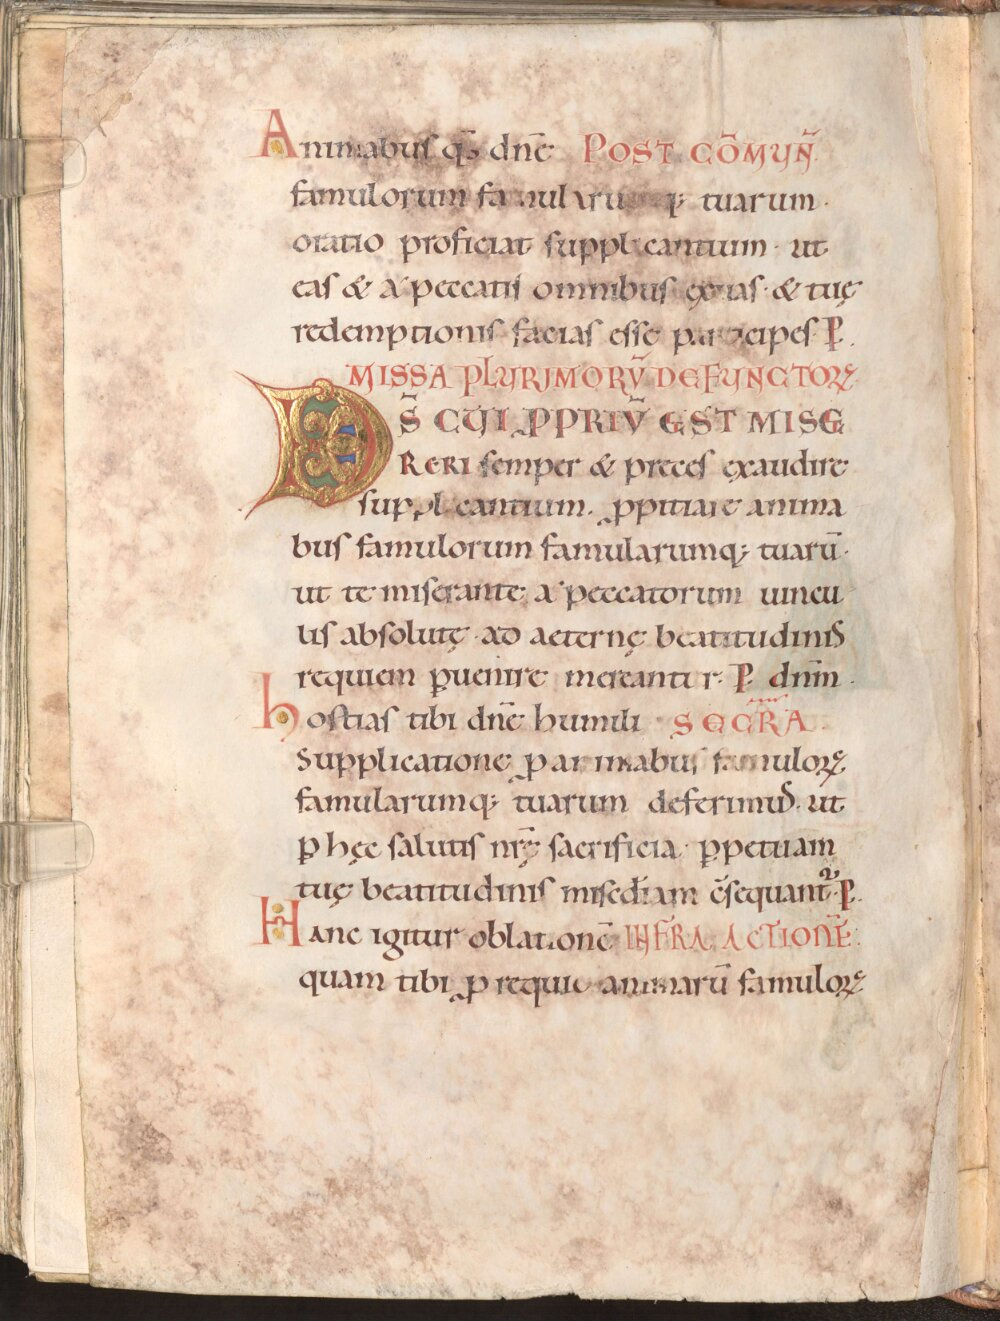 Animabus q̄s dn̄e POST CŌMVN̄
famulorum famularūq; tuarum ·
oratio proficiat supplicantium · ut
eas & a peccatis omnibus exuas · & tuę
redemptionis facias esse participes P̄.
MISSA PLVRIMORṼ DEFVNCTOꝜ
D̄S CVI PPRIṼ EST MISE
RERI semper & preces exaudire
supplicantium. ꝓpitiare anima
bus famulorum famularumq; tuarū ·
ut te miserante a peccatorum uincu
lis absolutę · ad aeternę beatitudinis
requiem ꝑuenire mereantur · P̄ dn̄m ·
hostias tibi dn̄e humili · SECRA
Supplicatione ꝓ animabus famuloꝝ
famularumq; tuarum deferimus · ut
ꝑ hęc salutis nr̄ę sacrificia · ꝑpetuam
tuę beatitudinis misedīam c̄sequant᷑ · P̄.
Hanc igitur oblationē INFRA ACTIONĒ ·
quam tibi ꝓ requie animarū famuloꝝ